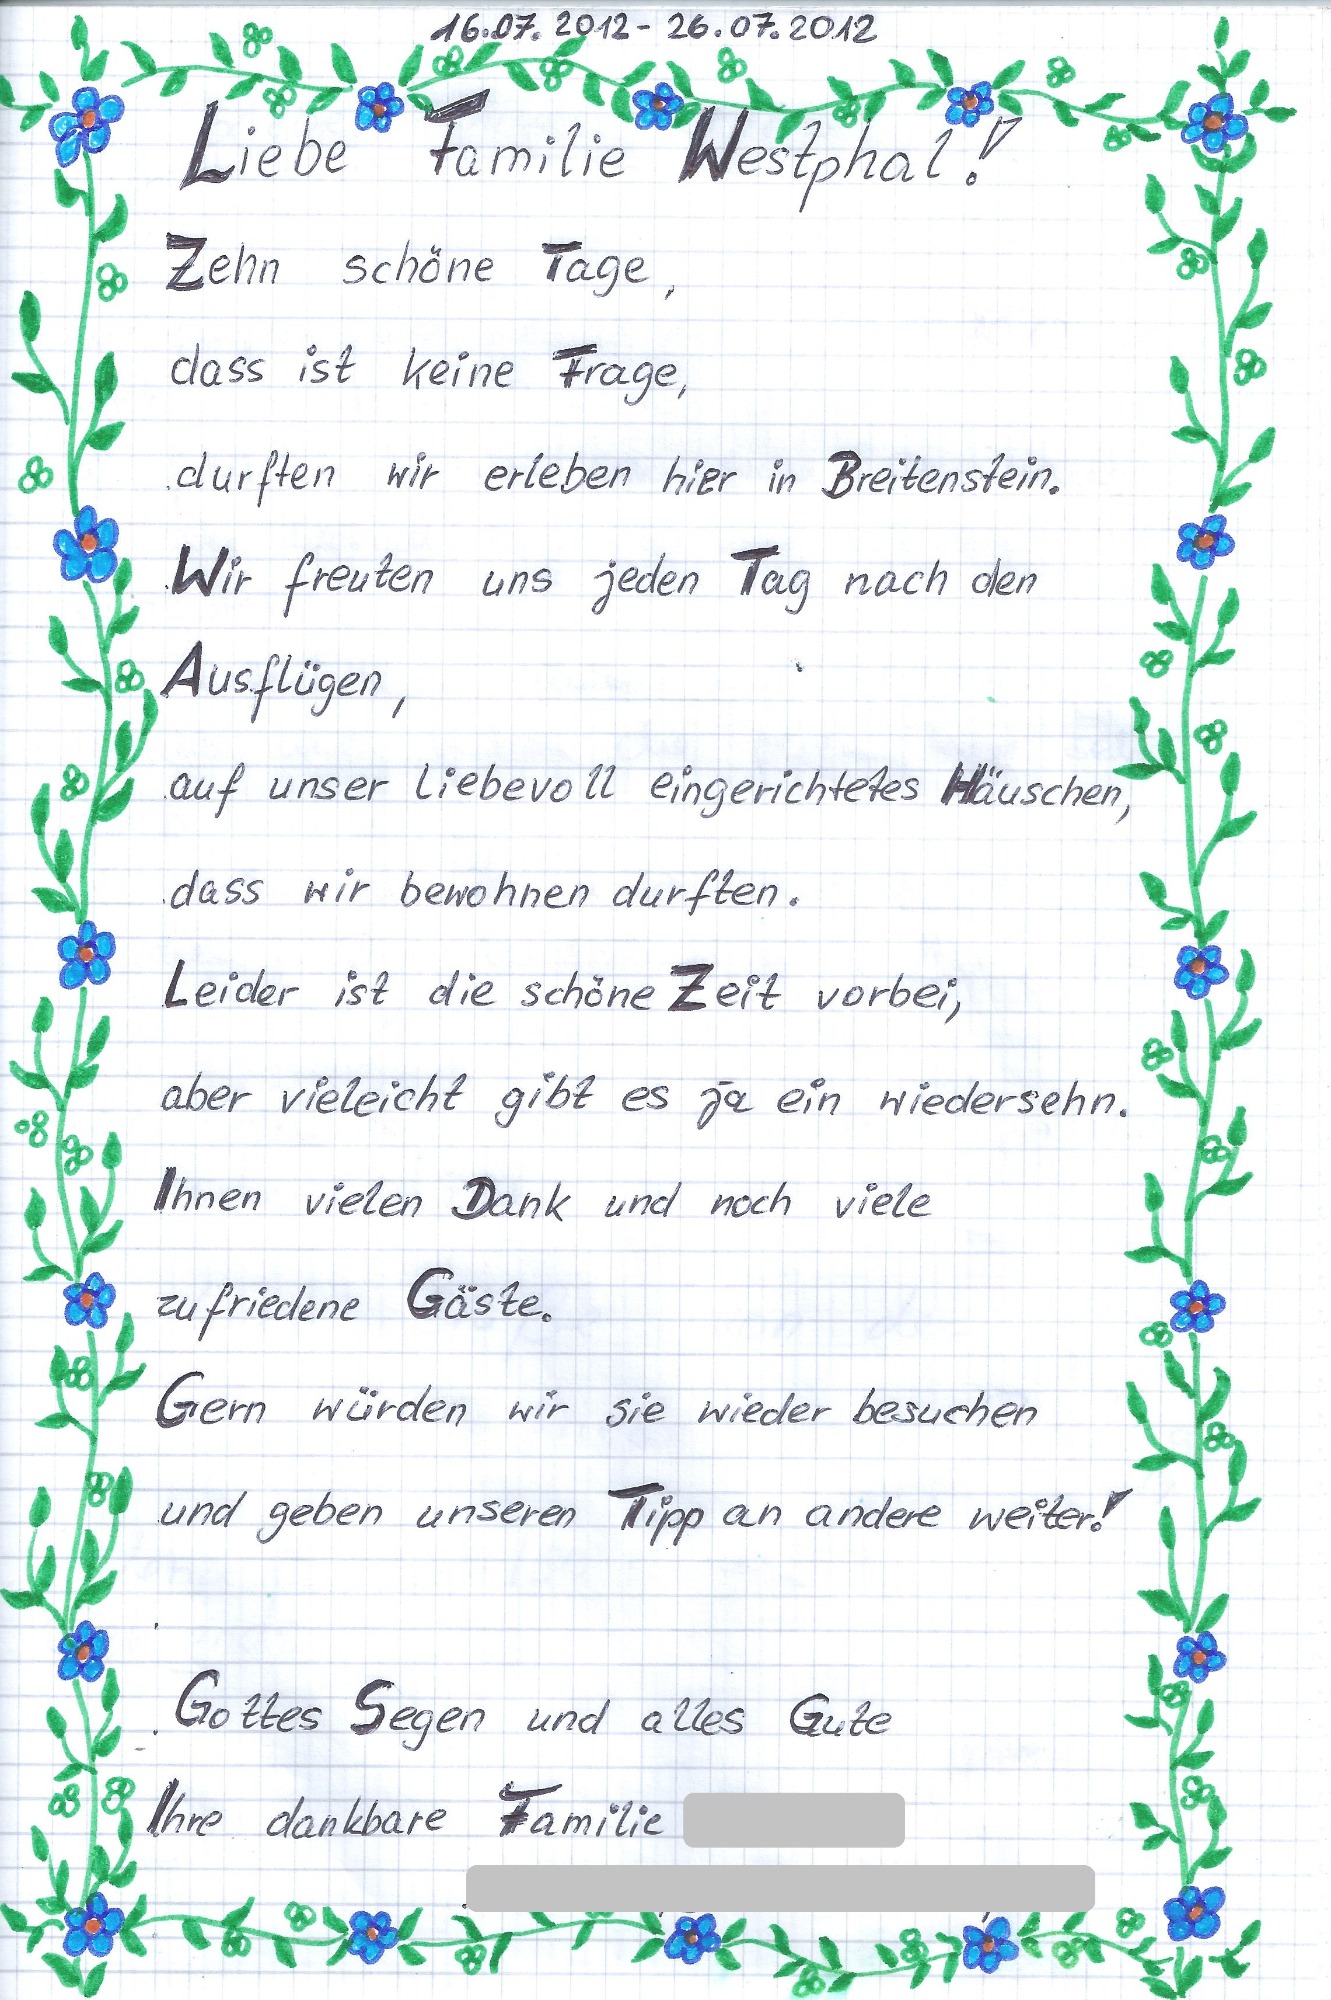 16.07.2012 - 26.07.2012
Liebe Familie Westphal!
Zehn schöne Tage,
dass ist keine Frage,
durften wir erleben hier in Breitenstein.
Wir freuten uns jeden Tag nach den
Ausflügen,
auf unser liebevoll eingerichtetes Häuschen,
dass wir bewohnen durften.
Leider ist die schöne Zeit vorbei,
aber vieleicht gibt es ja ein wiedersehn.
Ihnen vielen Dank und noch viele
zufriedene Gäste.
Gern würden wir sie wieder besuchen
und geben unseren Tipp an andere weiter!
Gottes Segen und alles Gute
Ihre dankbare Familie